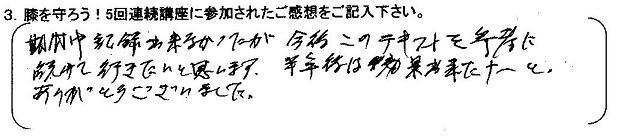 3. 膝を守ろう！5回連続講座に参加されたご感想をご記入下さい。
期間中 記録出来なかったが 今後このテキストを参考に
続けて行きたいと思います。 半年後は効果出来たナーと。
ありがとうございました。